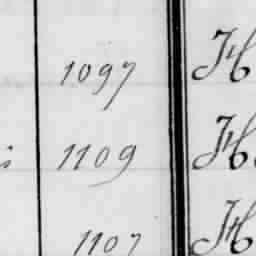 1097 H
1109 H
1107 H